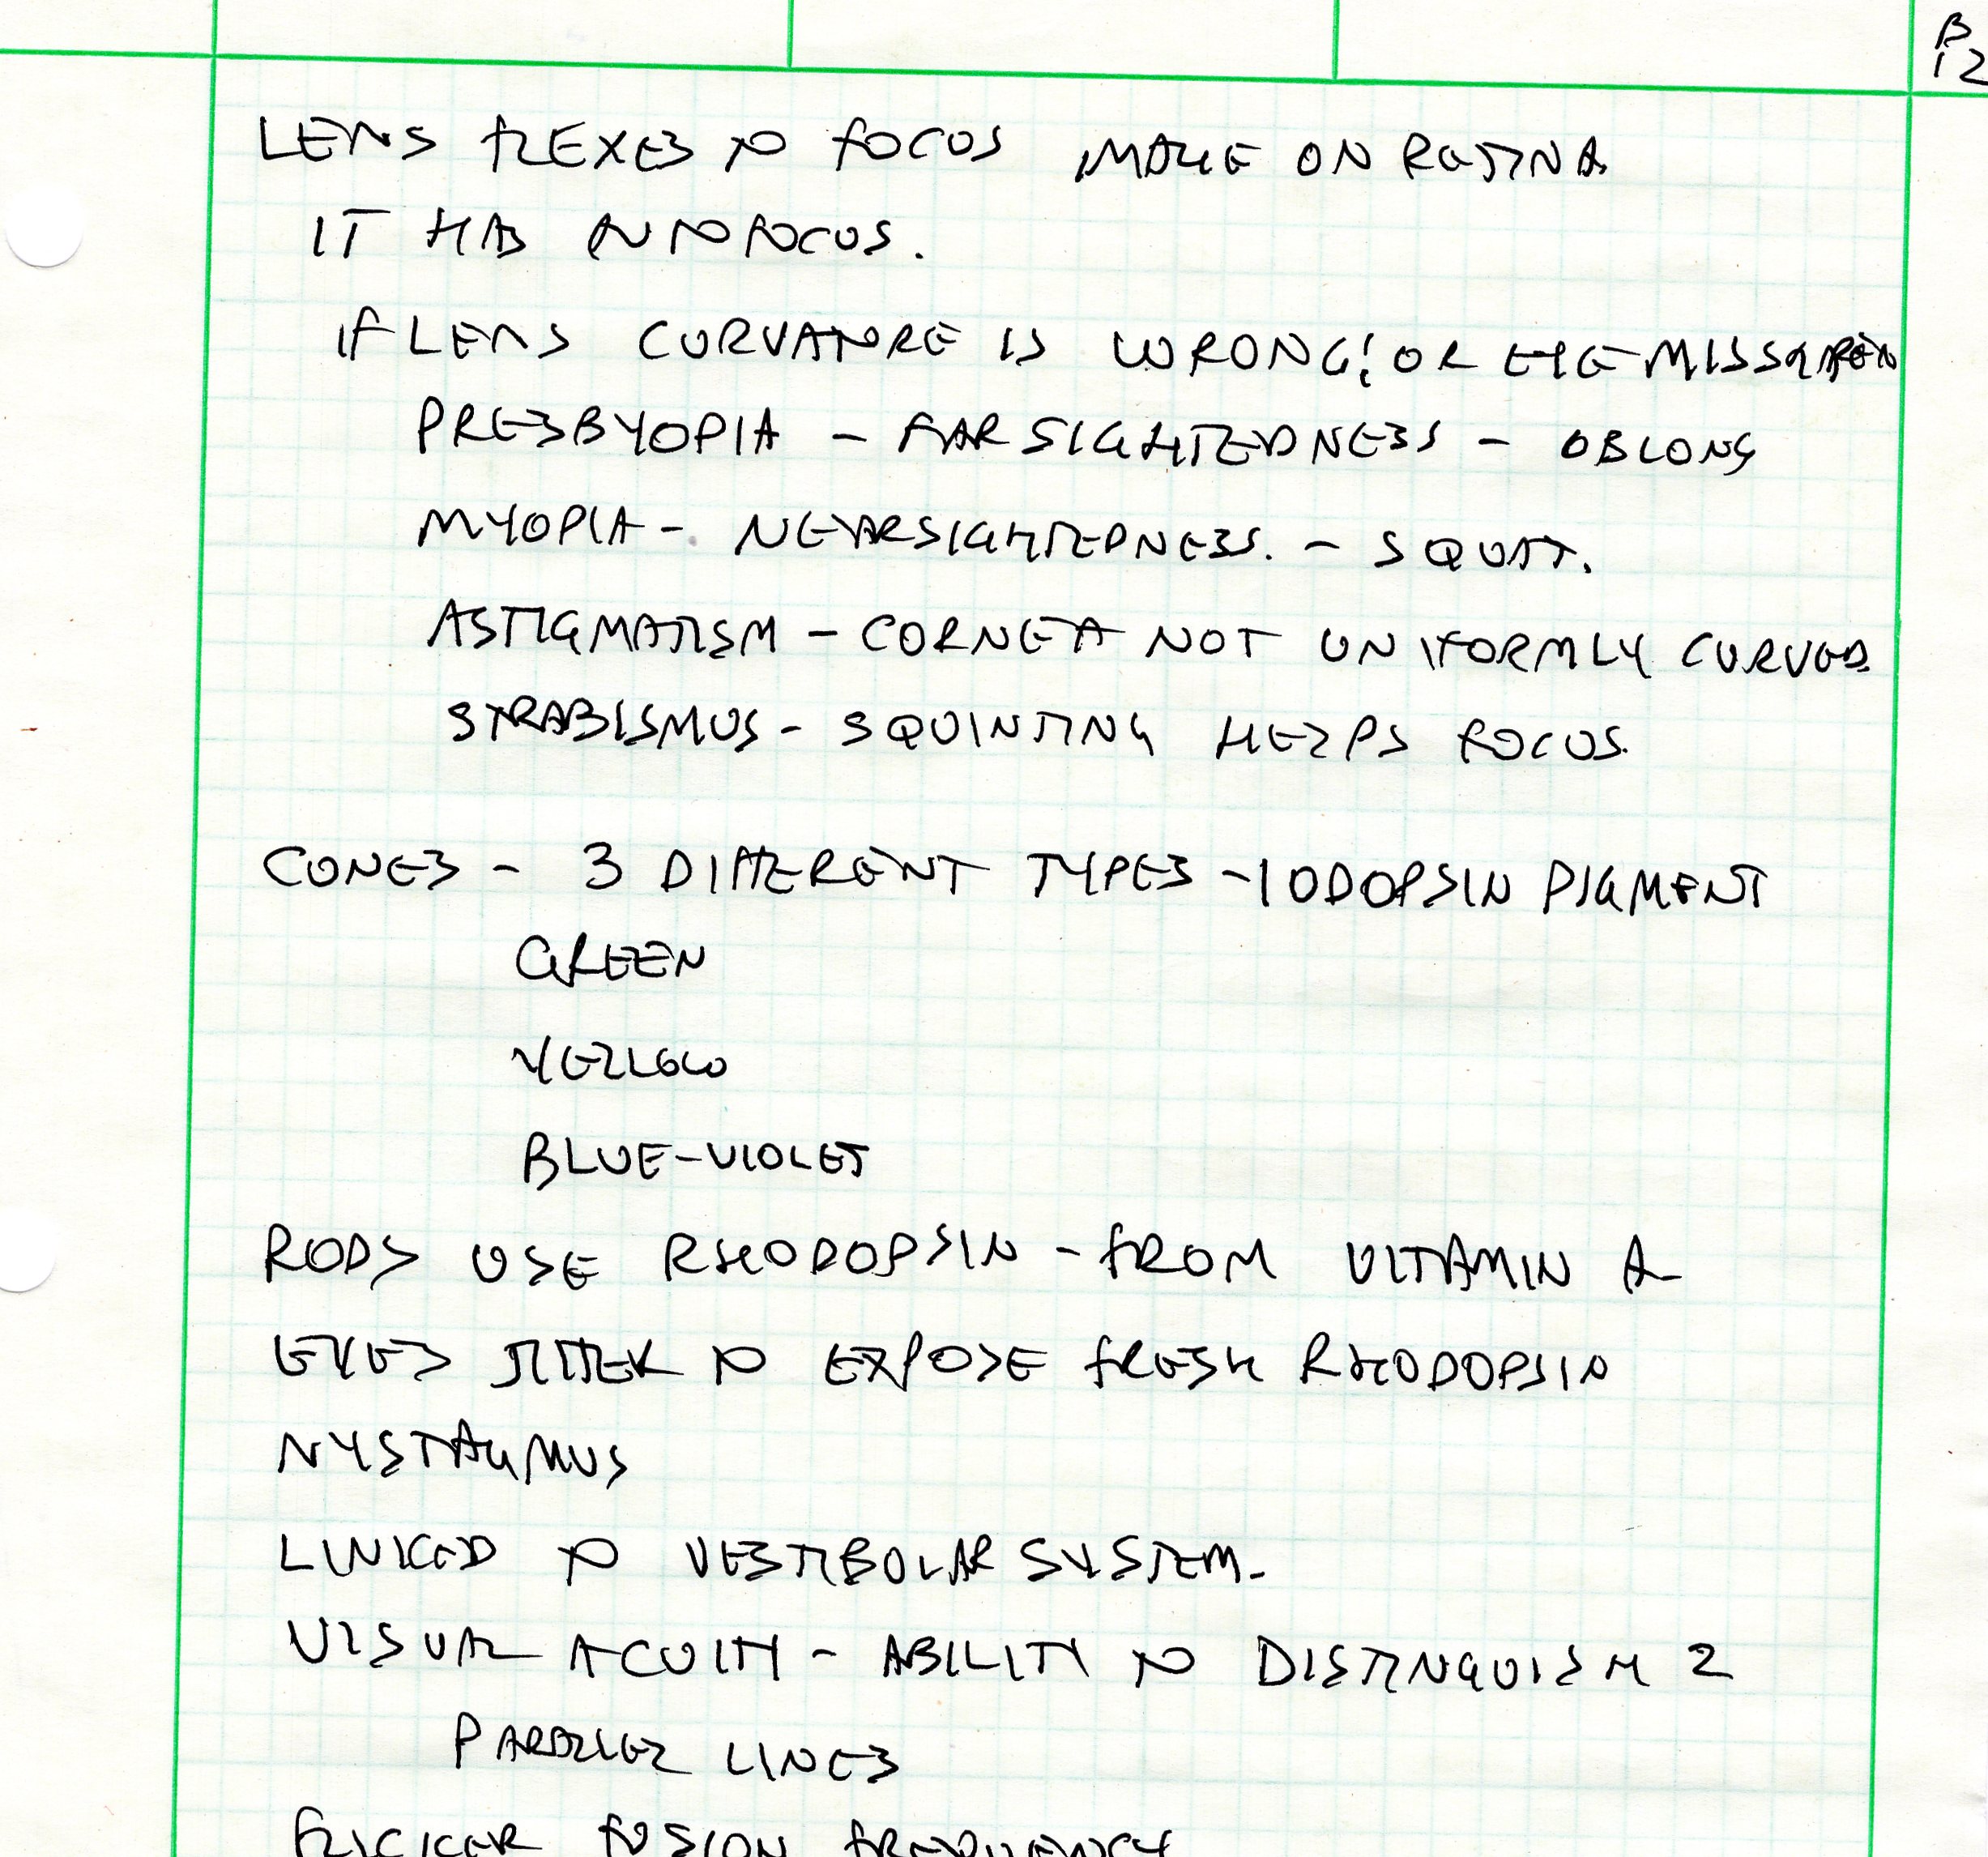 B
12
LENS FLEXES TO FOCUS IMAGE ON RETINA
IT HAS AUTOFOCUS.
IF LENS CURVATURE IS WRONG! OR EYE MISSHAPEN
PRESBYOPIA - FARSIGHTEDNESS - OBLONG
MYOPIA - NEARSIGHTEDNESS. - SQUAT.
ASTIGMATISM - CORNEA NOT UNIFORMLY CURVED
STRABISMUS - SQUINTING HELPS FOCUS.
CONES - 3 DIFFERENT TYPES - IODOPSIN PIGMENT
GREEN
YELLOW
BLUE-VIOLET
RODS USE RHODOPSIN - FROM VITAMIN A
EYES JITTER TO EXPOSE FRESH RHODOPSIN
NYSTAGMUS
LINKED TO VESTIBULAR SYSTEM.
VISUAL ACUITY - ABILITY TO DISTINGUISH 2
PARALLEL LINES
FLICKER FUSION FREQUENCY